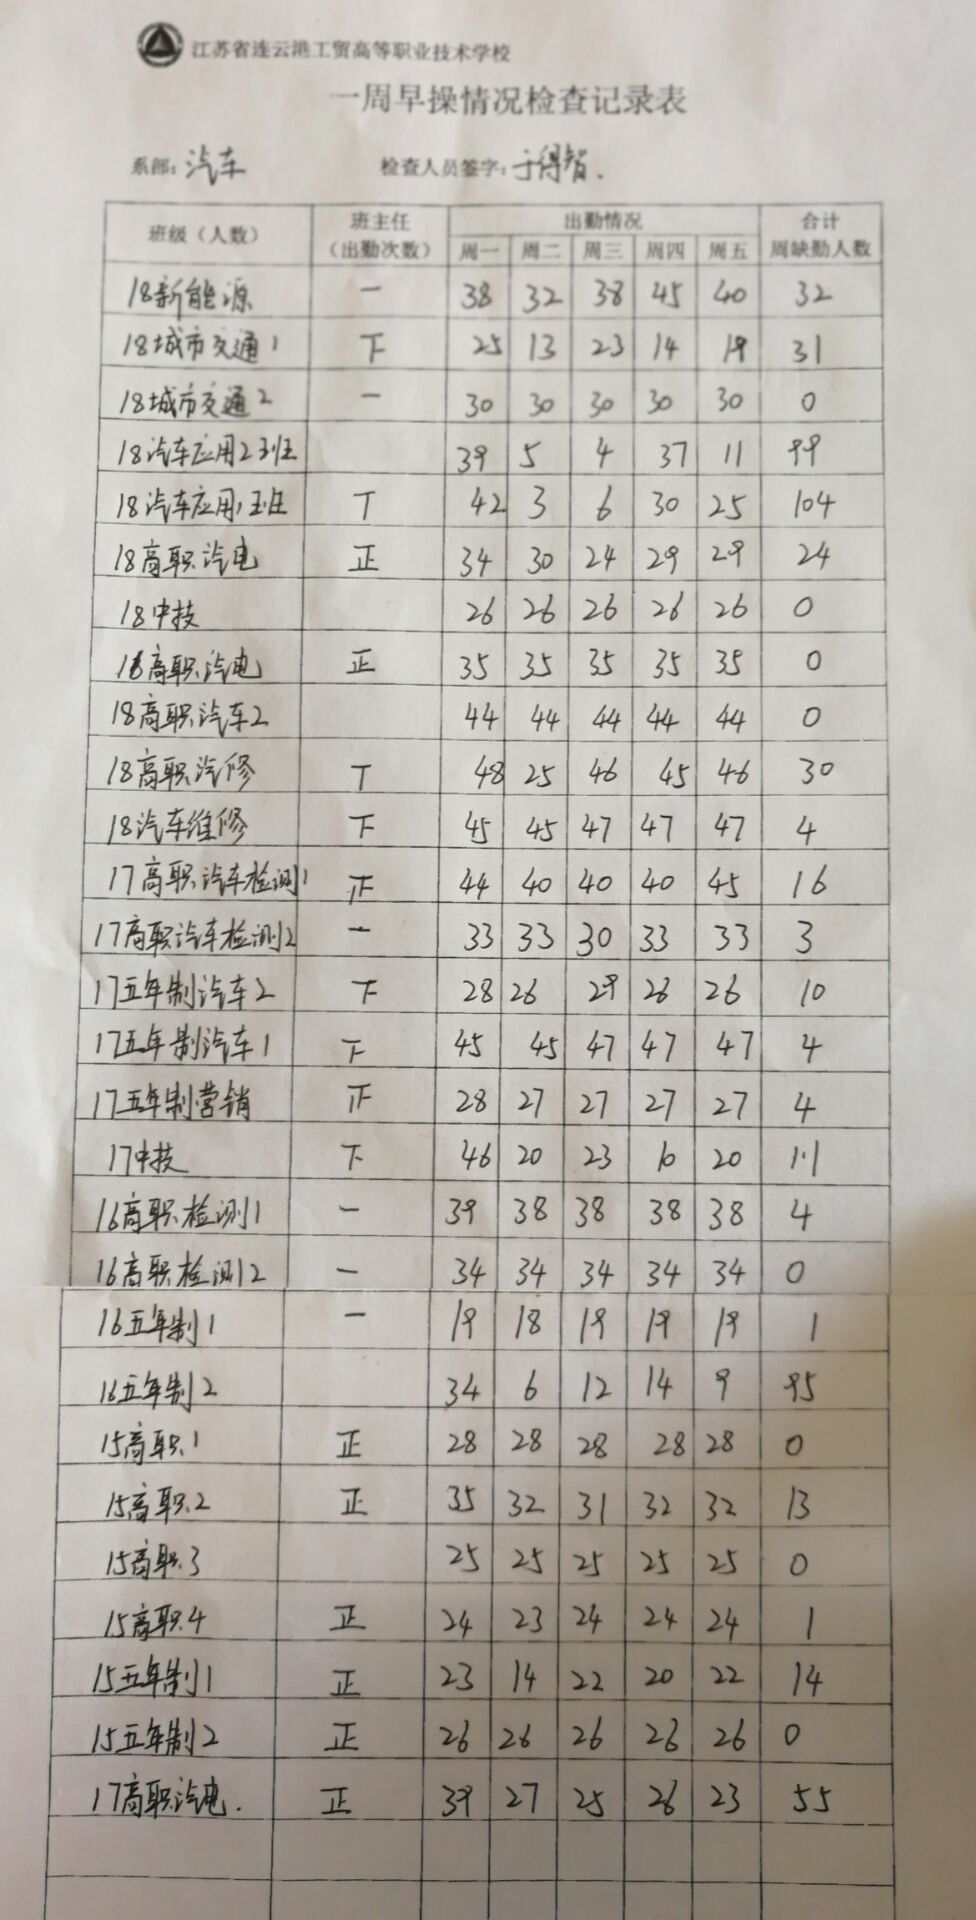 江苏省连云港工贸高等职业技术学校
一周早操情况检查记录表
系部：汽车 检查人员签字：于得智.
班级（人数） 班主任（出勤次数） 出勤情况 合计
周一 周二 周三 周四 周五 周缺勤人数
18新能源 一 38 32 38 45 40 32
18城市交通1 下 25 13 23 14 19 31
18城市交通2 一 30 30 30 30 30 0
18汽车应用2班 39 5 4 37 11 99
18汽车应用1班 T 42 3 6 30 25 104
18高职汽电 正 34 30 24 29 29 24
18中技 26 26 26 26 26 0
18高职汽电 正 35 35 35 35 35 0
18高职汽车2 44 44 44 44 44 0
18高职汽修 T 48 25 46 45 46 30
18汽车维修 下 45 45 47 47 47 4
17高职汽车检测1 正 44 40 40 40 45 16
17高职汽车检测2 一 33 33 30 33 33 3
17五年制汽车2 下 28 26 29 26 26 10
17五年制汽车1 下 45 45 47 47 47 4
17五年制营销 正 28 27 27 27 27 4
17中技 下 46 20 23 10 20 111
16高职检测1 一 39 38 38 38 38 4
16高职检测2 一 34 34 34 34 34 0
16五年制1 一 19 18 19 19 19 1
16五年制2 34 6 12 14 9 95
15高职.1 正 28 28 28 28 28 0
15高职.2 正 35 32 31 32 32 13
15高职.3 25 25 25 25 25 0
15高职.4 正 24 23 24 24 24 1
15五年制1 正 23 14 22 20 22 14
15五年制2 正 26 26 26 26 26 0
17高职汽电. 正 39 27 25 26 23 55